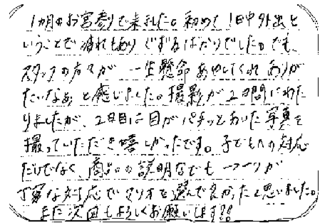 1ヵ月のお宮参りで来ました。初めて1日中外出と
いうことで疲れもありぐずるばかりでした。でも、
スタッフの方々が一生懸命あやしてくれありが
たいなぁと感じました。撮影が2日間にわた
りましたが、2日目に目がパチッとあいた写真を
撮っていただき嬉しかったです。子どもへの対応
だけでなく、商品の説明なども一つ一つが
丁寧な対応でマリオを選んで良かったと思いました。
また次回もよろしくお願いします!!